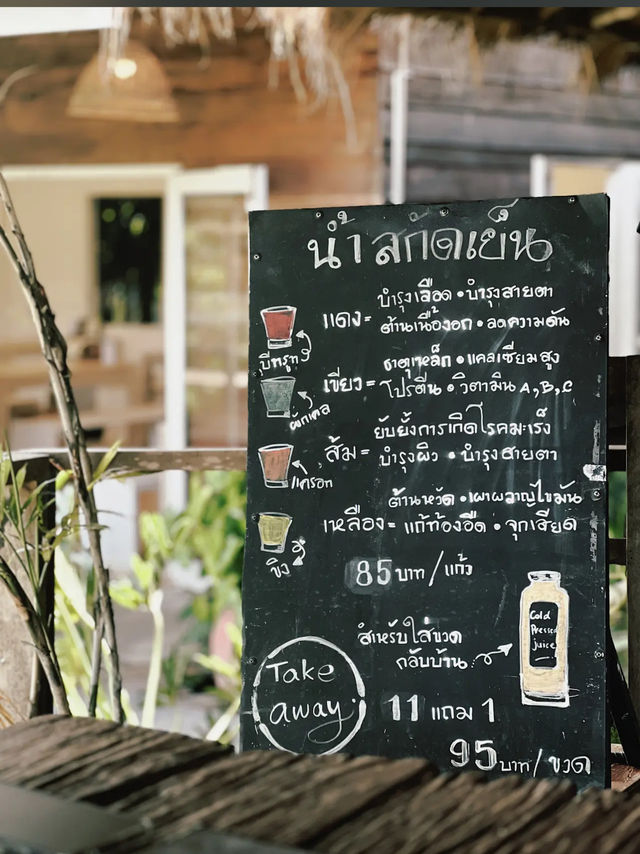 น้ำสกัดเย็น
บำรุงเลือด • บำรุงสายตา
แดง = ต้านเนื้องอก • ลดความดัน
บีทรูท
ธาตุเหล็ก • แคลเซียมสูง
เขียว = โปรตีน • วิตามิน A, B, C
ผักเคล
ยับยั้งการเกิดโรคมะเร็ง
ส้ม = บำรุงผิว • บำรุงสายตา
แครอท
ต้านหวัด • เผาผลาญไขมัน
เหลือง = แก้ท้องอืด • จุกเสียด
ขิง
85 บาท/แก้ว
สำหรับใส่ขวด
กลับบ้าน
Cold
Pressed
Juice
Take
away
11 แถม 1
95 บาท/ขวด